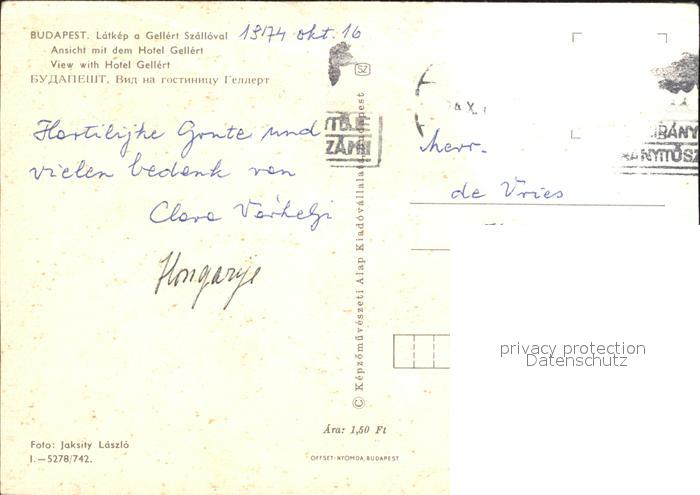 BUDAPEST. Látkép a Gellért Szállóval
1974 okt. 16
Ansicht mit dem Hotel Gellért
View with Hotel Gellért
БУДАПЕШТ. Вид на гостиницу Геллерт
SZ
Hartilijke Gronte und
vielen bedank van
Clara Várhelyi
Hongarije
© Képzőművészeti Alap Kiadóvállalata, Budapest
X.
IRÁNY
RÁNYÍTÓSZ
Mevr.
de Vries
privacy protection
Datenschutz
Ára: 1,50 Ft
Foto: Jaksity László
I.—5278/742.
OFFSET-NYOMDA, BUDAPEST